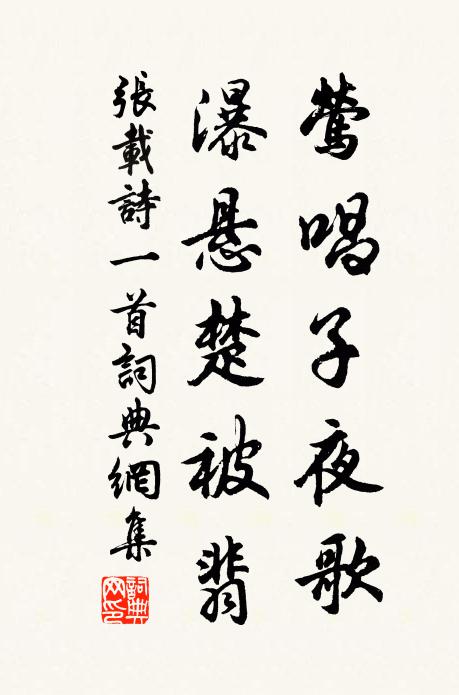 莺唱子夜歌
瀑悬楚被翡
張載詩一首詞典網集
詞典网印